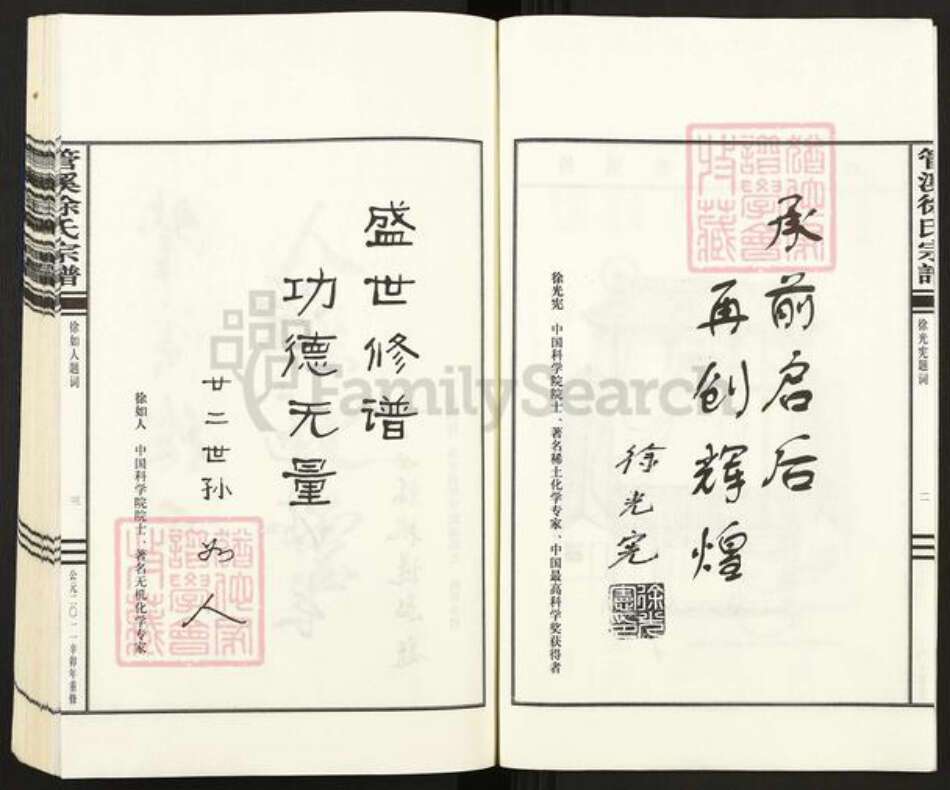 管溪徐氏宗譜
徐光宪题词
二
承前启后
再创辉煌
徐光宪
徐光宪 中国科学院院士、著名稀土化学专家、中国最高科学奖获得者
盛世修谱
功德无量
廿二世孙 如人
徐如人 中国科学院院士、著名无机化学专家
管溪徐氏宗譜
徐如人题词
三
公元二〇一一辛卯年重修
FamilySearch